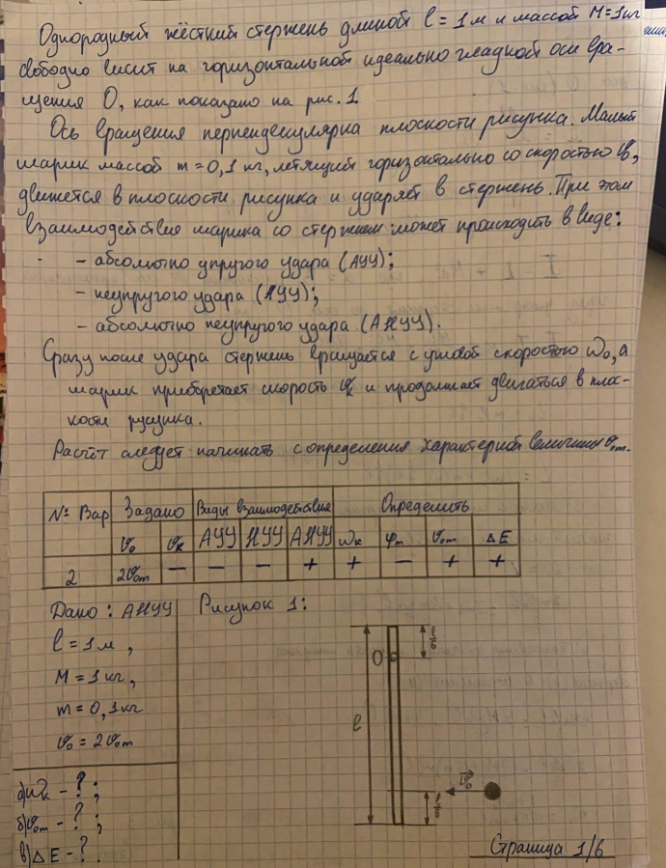 Однородный жёсткий стержень длиной l = 1 м и массой M = 1 кг
свободно висит на горизонтальной идеально гладкой оси вра-
щения O, как показано на рис. 1
Ось вращения перпендекулярна плоскости рисунка. Малый
шарик массой m = 0,1 кг, летящий горизонтально со скоростью v₀,
движется в плоскости рисунка и ударяет в стержень. При этом
взаимодействия шарика со стержнем может происходить в виде:
- абсолютно упругого удара (АУУ);
- неупругого удара (НУУ);
- абсолютно неупругого удара (АНУУ).
Сразу после удара стержень вращается с углов скоростью ω₀, а
шарик приобретает скорость vₖ и продолжает двигаться в плос-
кости рисунка.
Расчёт следует начинать с определения характерной величины v₀ₘ.
№ Вар Задано Виды взаимодействия Определить
v₀ vₖ АУУ НУУ АНУУ ωₖ φₘ v₀ₘ ΔE
2 2v₀ₘ – – – + + – + +
Дано: АНУУ Рисунок 1:
l = 1 м,
M = 1 кг,
m = 0,1 кг
v₀ = 2v₀ₘ
а) ωₖ - ?;
б) v₀ₘ - ?;
в) ΔE - ?.
O
l
v₀
Страница 1/6